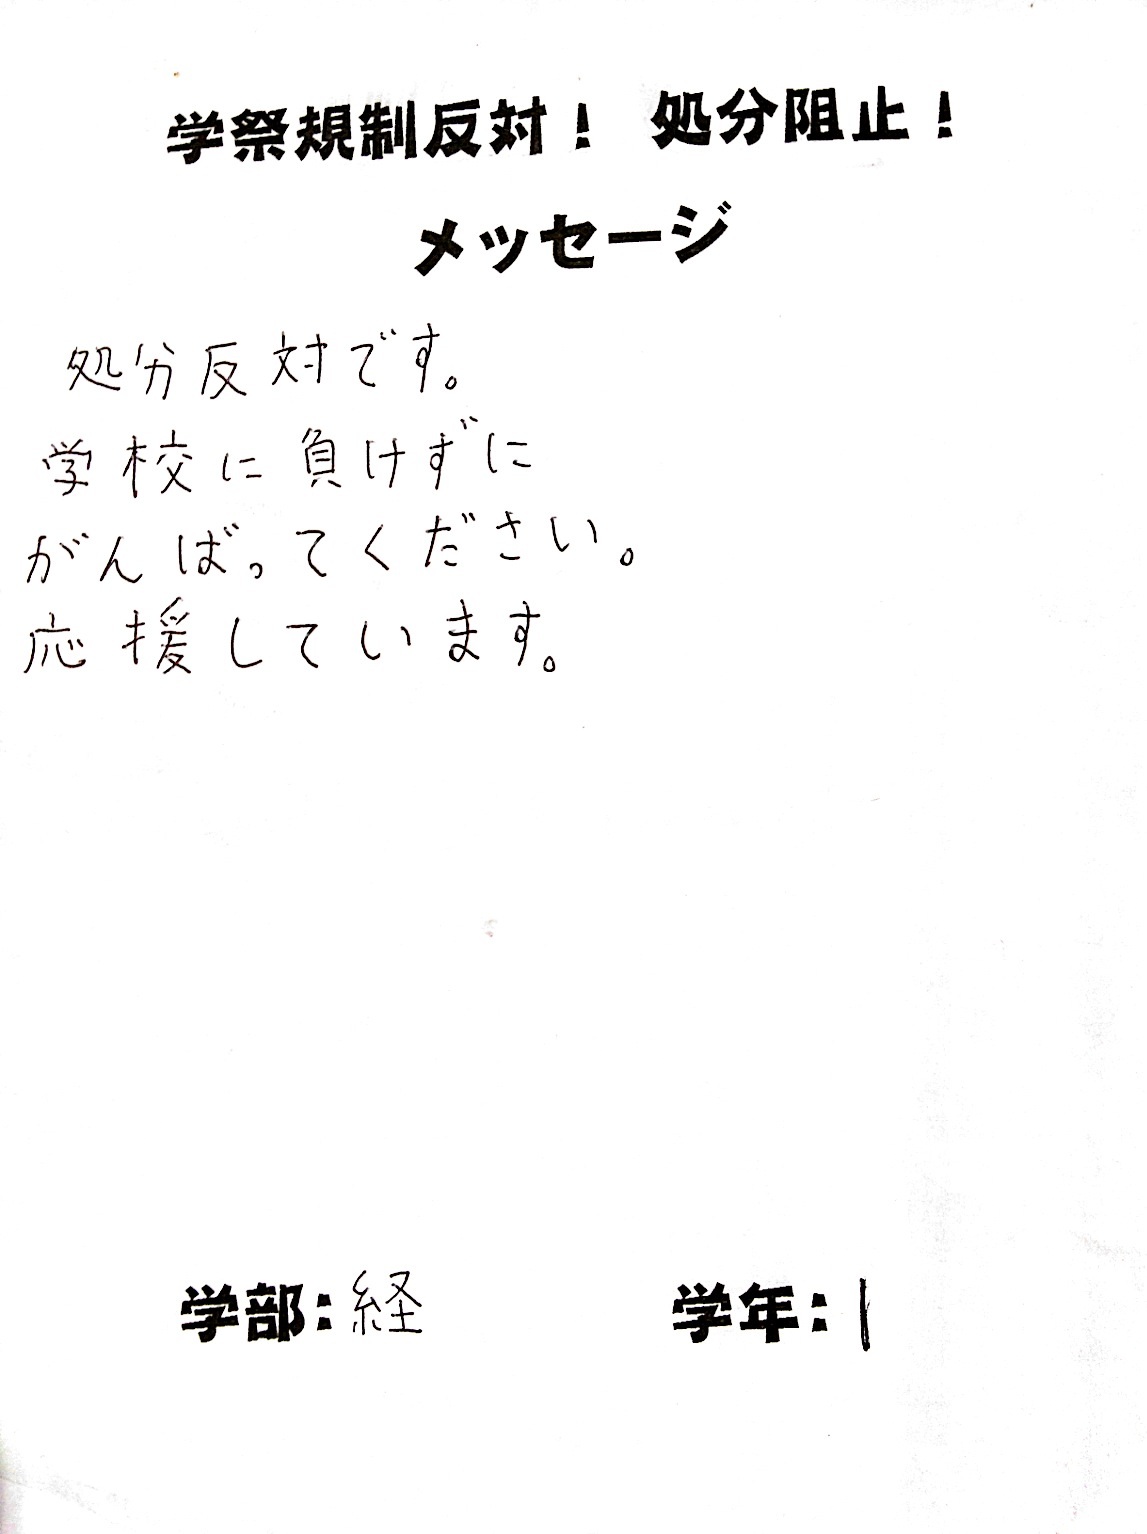 学祭規制反対! 処分阻止!
メッセージ
処分反対です。
学校に負けずに
がんばってください。
応援しています。
学部:経 学年:1